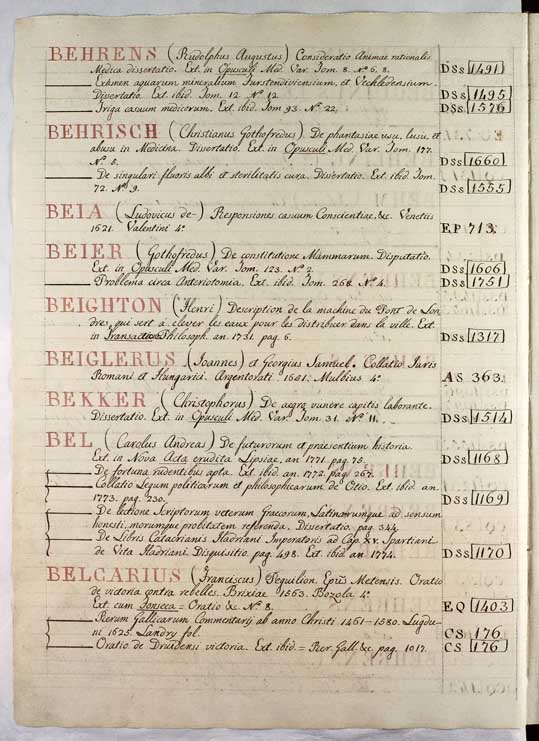 BEHRENS (Rudolphus Augustus) Consideratio Animae rationalis
Medica dissertatio. Ext. in Opusculi Med. Var. Tom. 8. Nº 6. 8. DSs 1491
Examen aquarum mineralium Furstendiviensium, et Vechledensium.
Dissertatio. Ext. ibid. Tom. 12. Nº 12. DSs 1495
Triga casuum medicorum. Ext. ibid. Tom 93. Nº 22. DSs 1576
BEHRISCH (Christianus Gothofredus) De phantasiae usu, lusu, et
abusu in Medicina. Dissertatio. Ext. in Opusculi Med. Var. Tom. 177.
Nº 5. DSs 1660
De singulari fluoris albi et sterilitatis cura. Dissertatio. Ext. ibid. Tom.
72. Nº 9. DSs 1555
BEIA (Ludovicus de) Responsiones casuum Conscientiae, &c. Venetiis
1621. Valentini 4º EP 713.
BEIER (Gothofredus) De constitutione Mammarum. Disputatio.
Ext. in Opusculi Med. Var. Tom. 123. Nº 2. DSs 1606
Problema circa Arteriotomia. Ext. ibid. Tom. 268. Nº 4. DSs 1751
BEIGHTON (Henri) Description de la machine du Pont de Lon
dres, qui sert à elever les eaux pour les distribuer dans la ville. Ext
in Transactio Philosoph. an. 1731. pag. 6. DSs 1317
BEIGLERUS (Joannes) et Georgius Samuel. Collatio Juris
Romani et Hungarici. Argentorati 1651. Mulbius 4º AS 363.
BEKKER (Christophorus) De aegro vunere capitis laborante.
Dissertatio. Ext. in Opusculi Med. Var. Tom. 31. Nº 11. DSs 1514
BEL (Carolus Andreas) De futurorum et praesentium historia.
Ext. in Nova Acta erudita Lipsiae, an 1771. pag. 75. DSs 1168
De fortuna rudentibus apta. Ext. ibid. an. 1772. pag. 267.
Collatio Legum politicarum et philosophicarum de Otio. Ext. ibid. an
1773. pag. 230. DSs 1169
De lectione Scriptorum veterum Graecorum, Latinorumque ad sensum
honesti, morumque probitatem referenda. Dissertatio. pag. 344.
De Libris Catacrianis Hadriani Imperatoris ad Cap. XV. Spartiani
de Vita Hadriani. Disquisitio. pag. 498. Ext. ibid. an 1774. DSs 1170
BELCARIUS (Franciscus) Peguilion. Epus Metensis. Oratio
de victoria contra rebelles. Brixiae 1563. Bozola 4º
Ext. cum Fonseca = Oratio &c Nº 8. EQ 1403
Rerum Gallicarum Commentarij ab anno Christi 1461-1580. Lugdu
ni 1625. Landry fol. CS 176
Oratio de Druidensi victoria. Ext. ibid. = Rer. Gall &c pag. 1017. CS 176